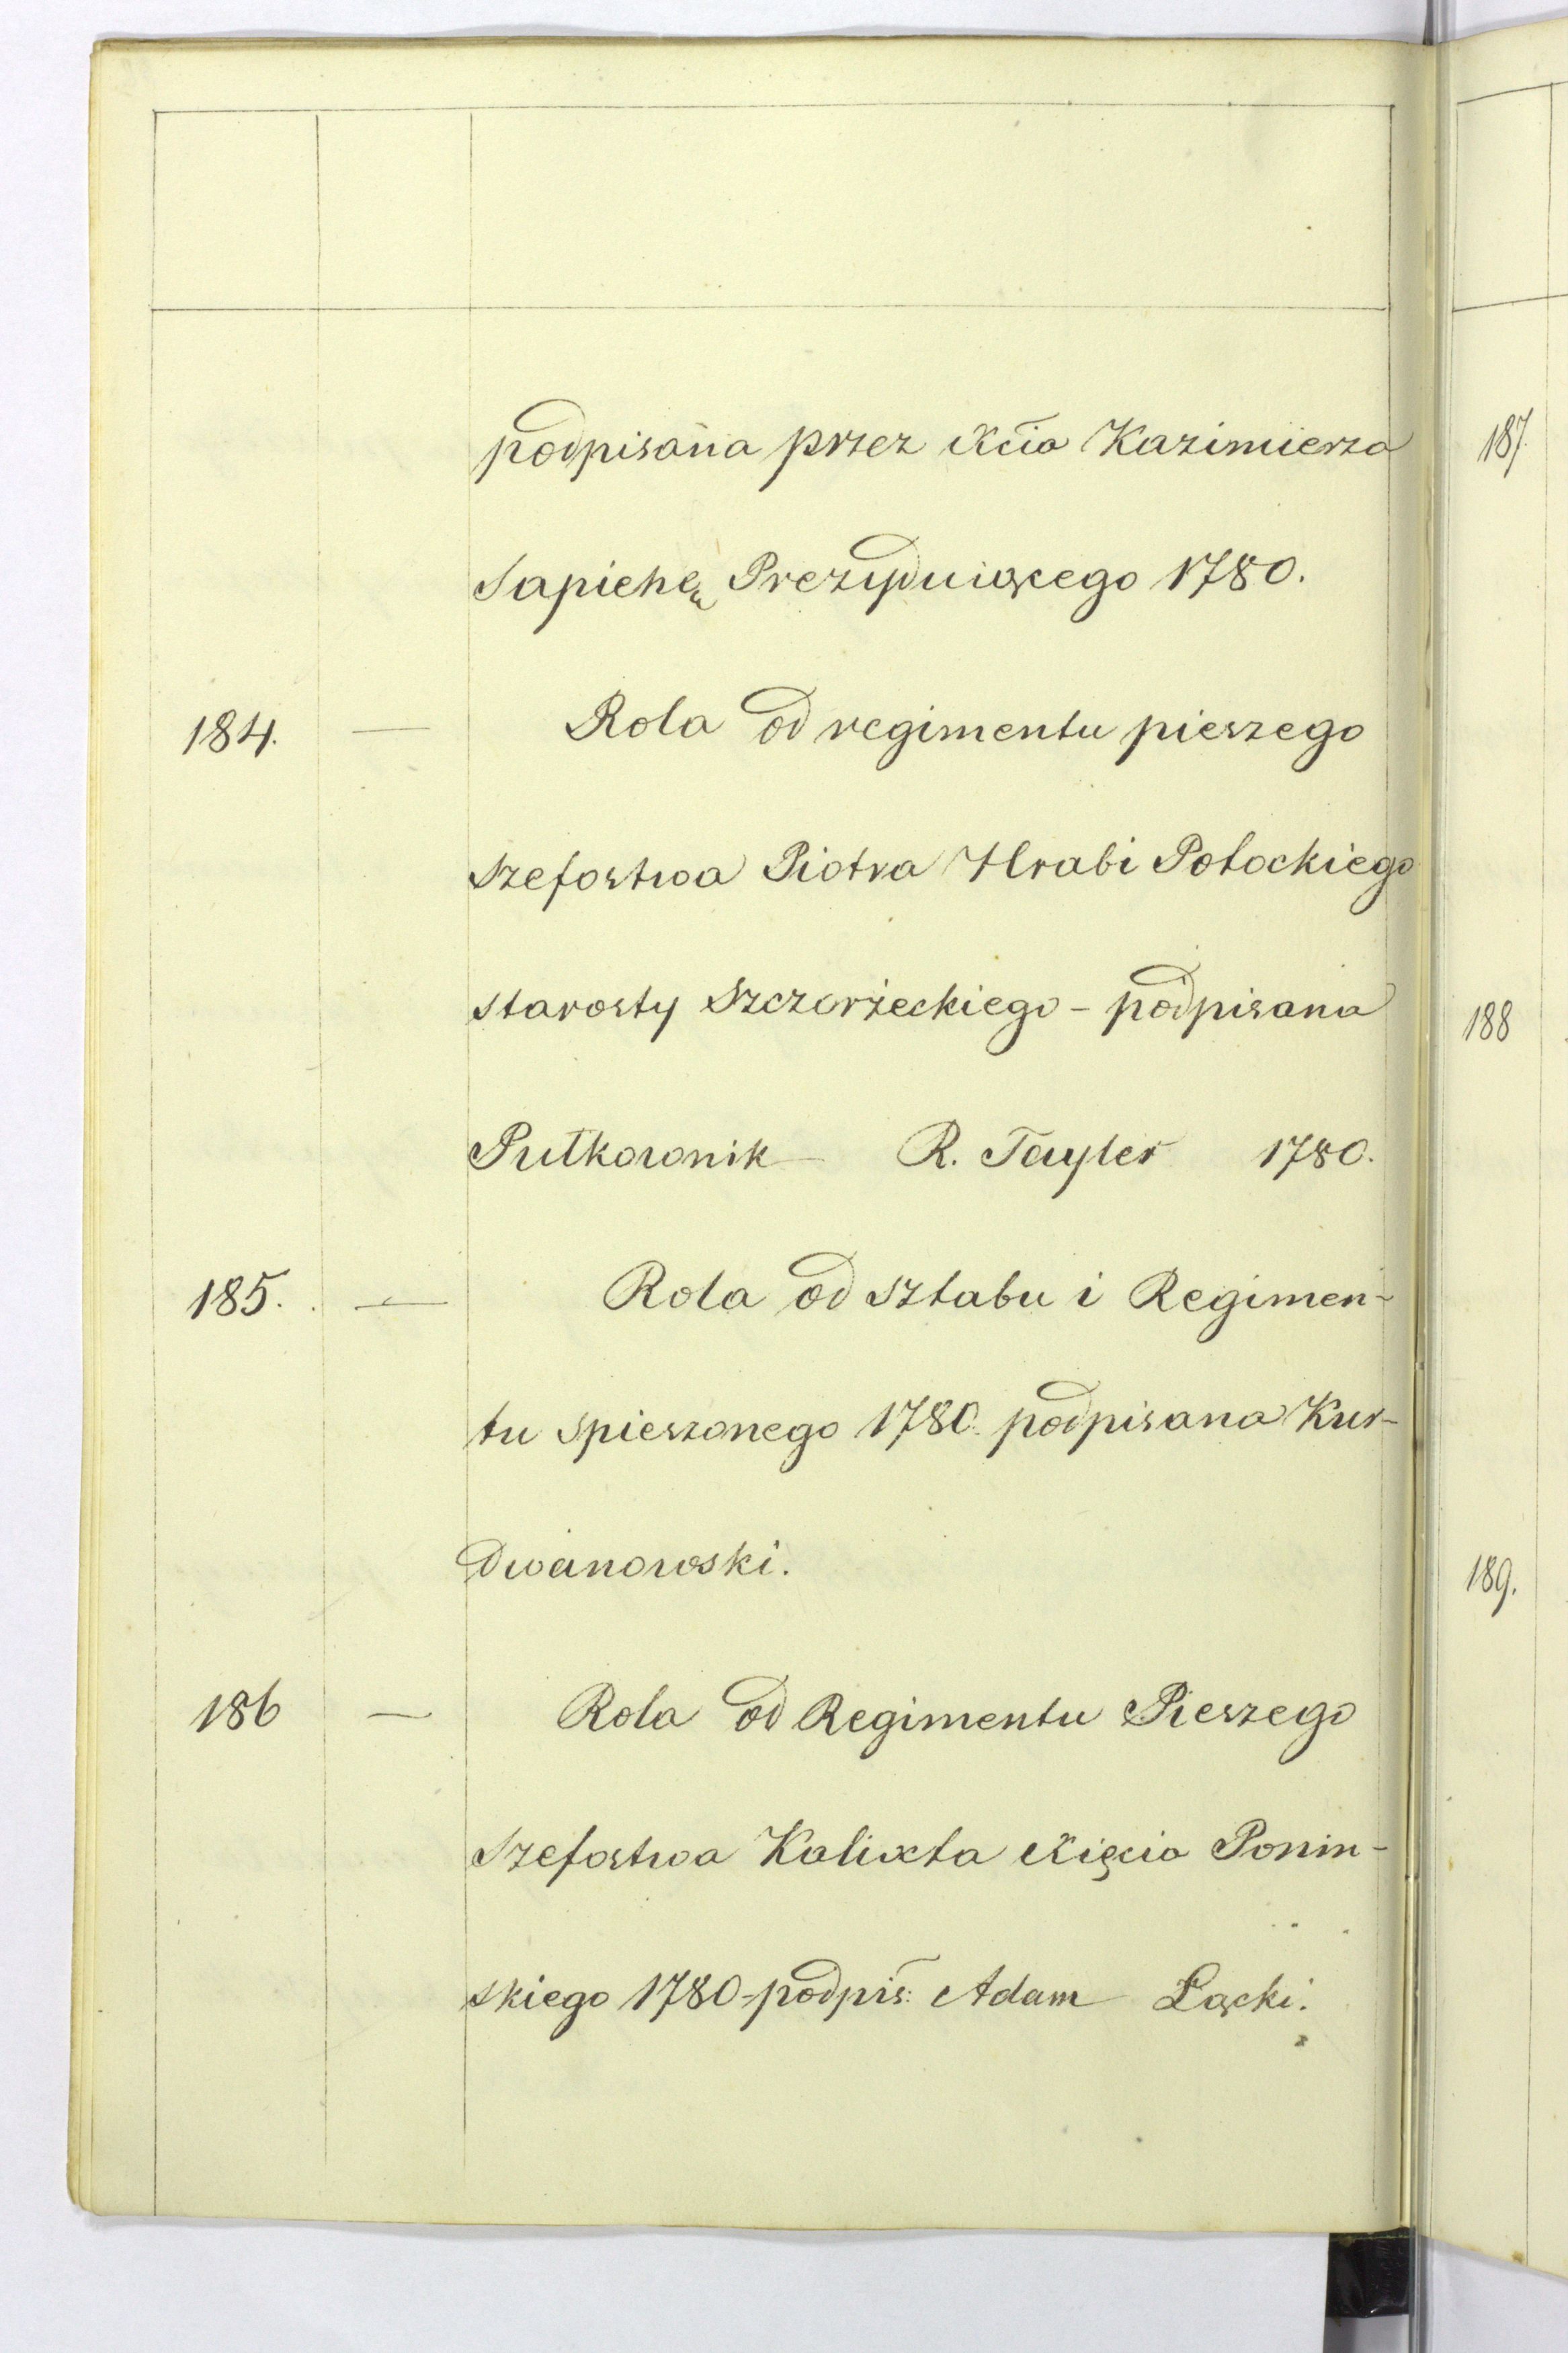 podpisana przez Xcia Kazimierza
Sapiehę Prezyduiącego 1780.
184. — Rola od regimentu pieszego
szefostwa Piotra Hrabi Potockiego
starosty Szczerżeckiego - podpisana
Pułkownik R. Tayler 1780.
185. — Rola od sztabu i Regimen-
tu spieszonego 1780. podpisana Kur-
dwanowski.
186 — Rola od Regimentu Pieszego
szefostwa Kalixta Xięcia Ponin-
skiego 1780 - podpis: Adam Łącki.
187.
188
189.